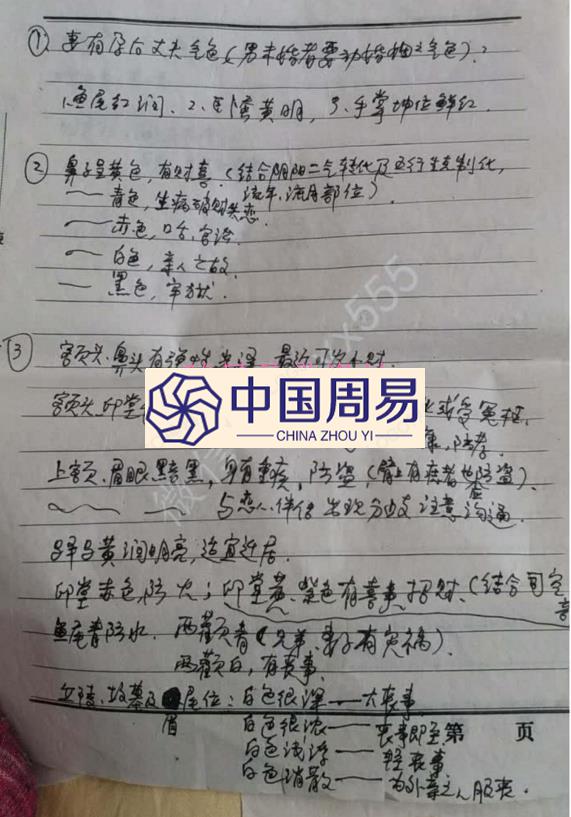 ① 妻有孕后丈夫气色(男未婚者要动婚姻之气色):
1.鱼尾红润、2、卧蚕黄明,3、手掌坤位鲜红.
② 鼻子呈黄色,有财喜(结合阴阳二气转化及五行生克制化,
青色,生病破财失恋. 流年、流月部位)
赤色,口舌、官讼
白色,亲人之故.
黑色,牢狱.
③ 额头、鼻头有
额头、印堂
或受冤枉.
中国周易
CHINA ZHOU YI
防孝
上额、眉眼黯黑,身有重疾,防盗(
与恋人、伴侣出现分歧注意沟通.
驿马黄润明亮,适宜迁居.
印堂赤色,防火;印堂黄、紫色有喜事招财.(结合
鱼尾青防水. 两颧青(兄弟、妻子有灾祸).
两颧白,有丧事.
丘陵、坟墓及眉尾位:白色很深——大丧事
白色很浓——丧事即至
第 页
白色浅浮——轻丧事
白色消散——为外亲之人服丧.